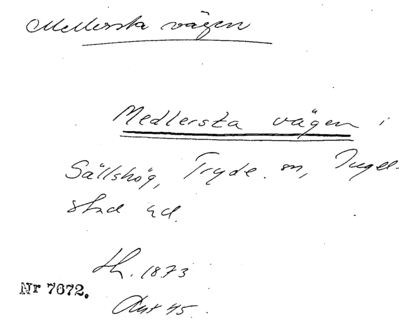 Mellersta vägen
Medlersta vägen i
Sällshög, Tryde sn, Ingel-
stad hd.
1873
Nr 7672.
45